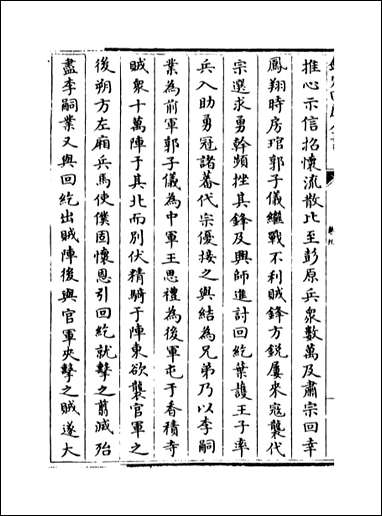 推心示信招懷流散比至彭原兵衆數萬及肅宗回幸
鳳翔時房琯郭子儀繼戰不利賊鋒方鋭屢来寇襲代
宗選求勇幹頻挫其鋒及興師進討回紇葉護王子率
兵入助勇冠諸蕃代宗優接之與結為兄弟乃以李嗣
業為前軍郭子儀為中軍王思禮為後軍屯于香積寺
賊衆十萬陣于其北而别伏精騎于陣東欲襲官軍之
後朔方左廂兵馬使僕固懷恩引回紇就擊之翦滅殆
盡李嗣業又與回紇出賊陣後與官軍夾擊之賊遂大